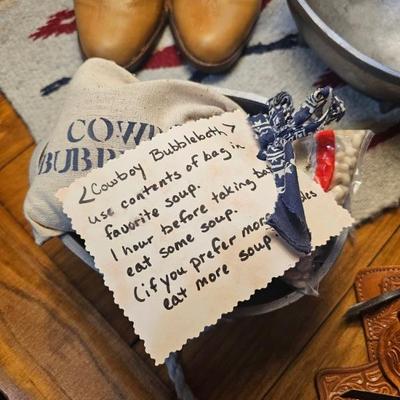 COW
BUBB
<Cowboy Bubblebath>
use contents of bag in
favorite soup.
1 hour before taking
eat some soup.
(if you prefer more
eat more soup.